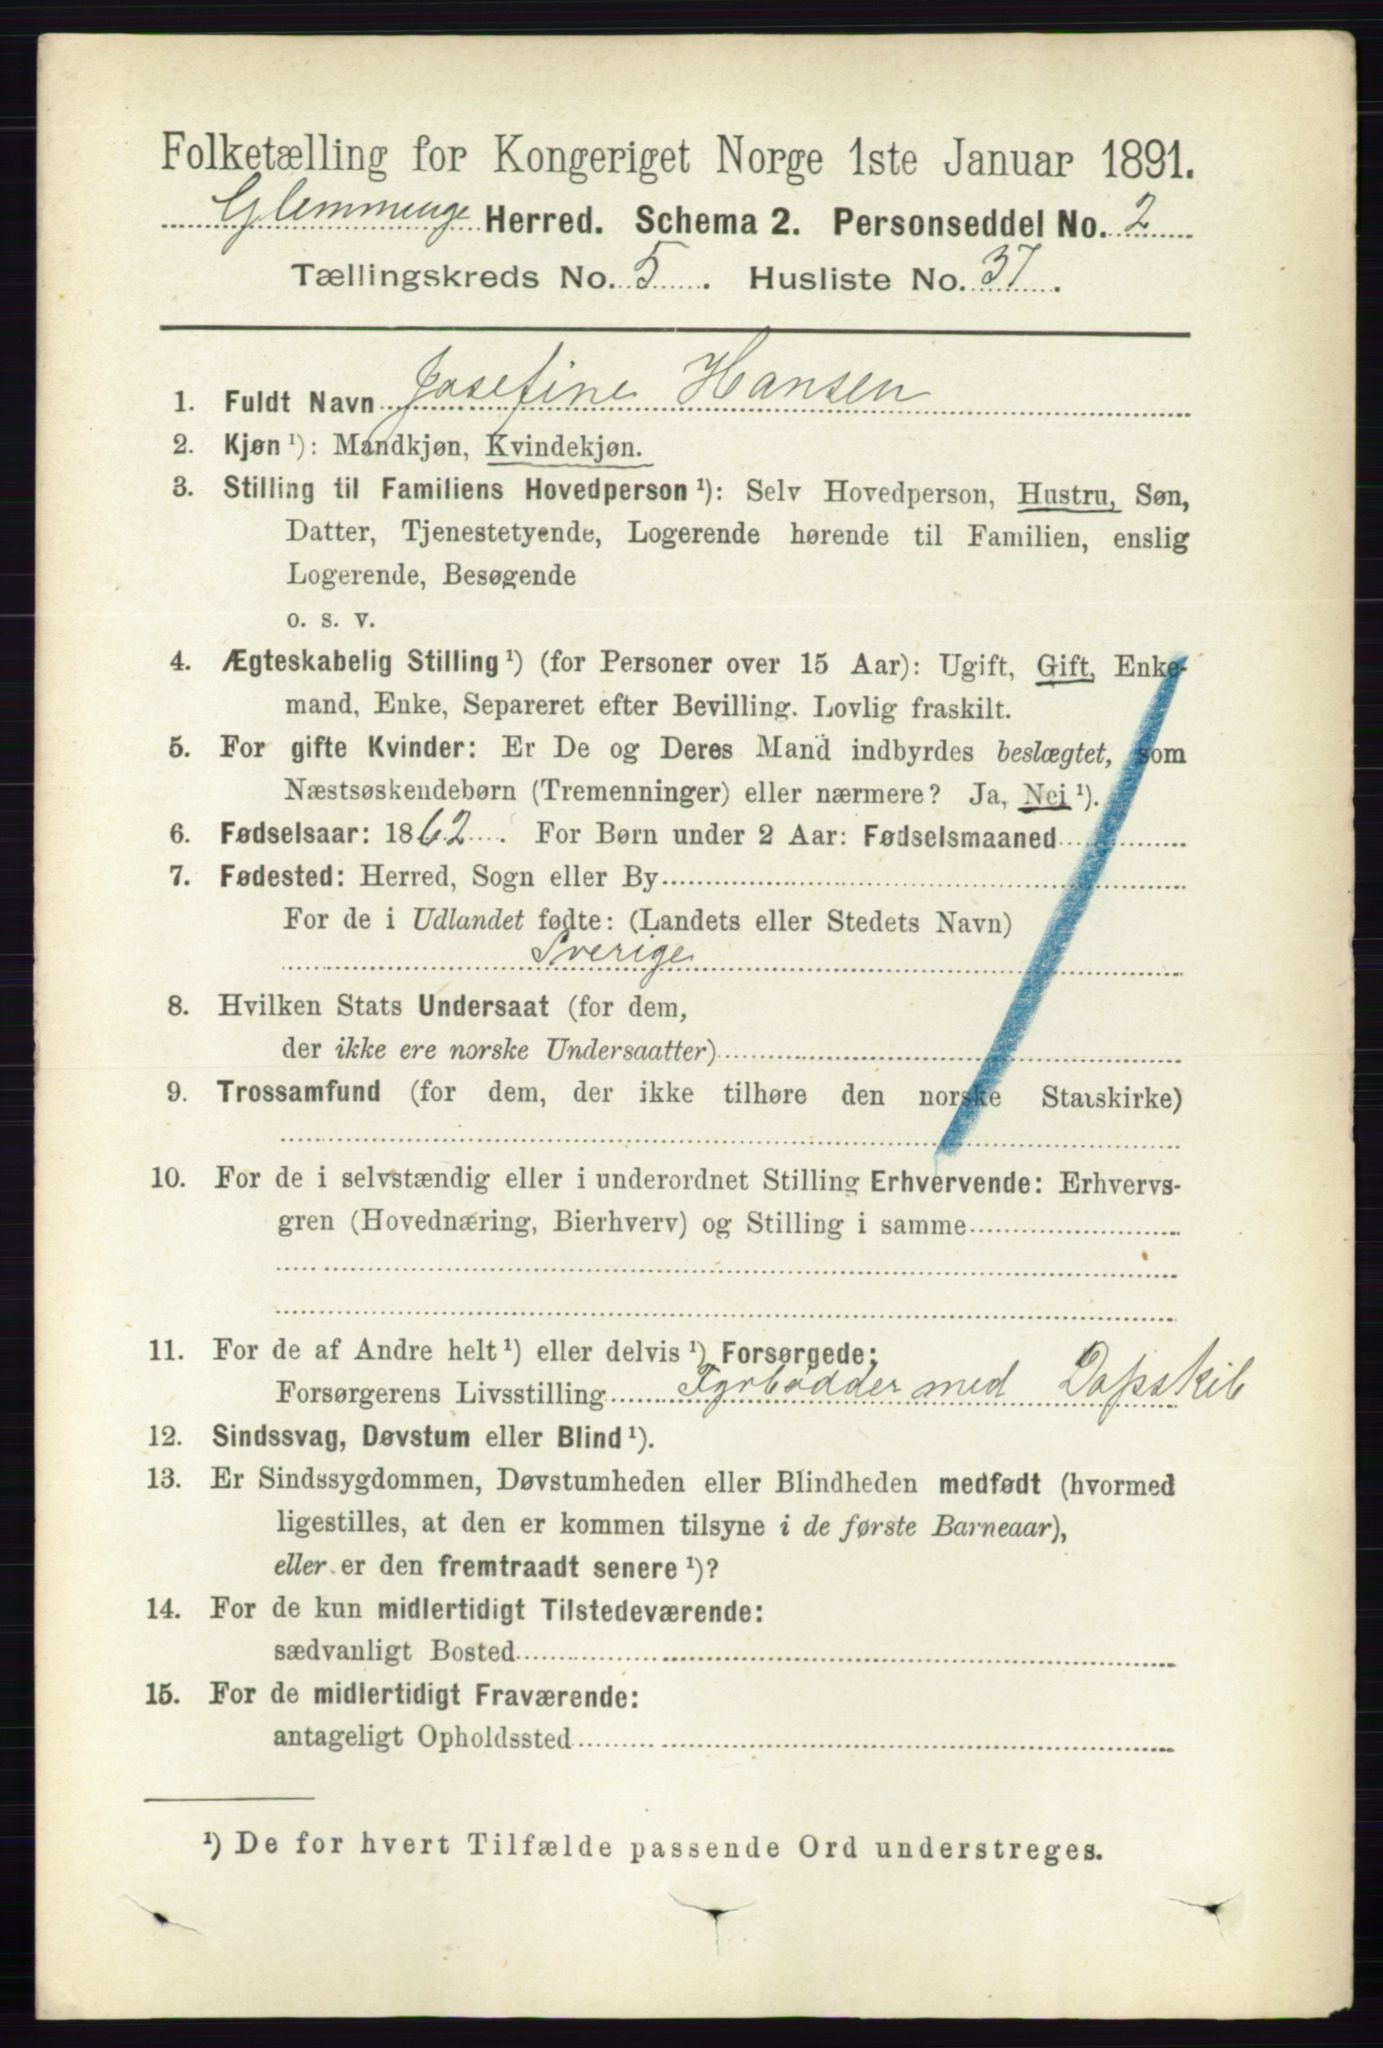 Folketælling for Kongeriget Norge 1ste Januar 1891.
Glemminge Herred. Schema 2. Personseddel No. 2
Tællingskreds No. 5. Husliste No. 37.
1. Fuldt Navn Josefine Hansen
2. Kjøn ¹): Mandkjøn, Kvindekjøn.
3. Stilling til Familiens Hovedperson ¹): Selv Hovedperson, Hustru, Søn,
Datter, Tjenestetyende, Logerende hørende til Familien, enslig
Logerende, Besøgende
o. s. v.
4. Ægteskabelig Stilling ¹) (for Personer over 15 Aar): Ugift, Gift, Enke-
mand, Enke, Separeret efter Bevilling. Lovlig fraskilt.
5. For gifte Kvinder: Er De og Deres Mand indbyrdes beslægtet, som
Næstsøskendebørn (Tremenninger) eller nærmere? Ja, Nei ¹).
6. Fødselsaar: 1862. For Børn under 2 Aar: Fødselsmaaned
7. Fødested: Herred, Sogn eller By
For de i Udlandet fødte: (Landets eller Stedets Navn)
Sverige
8. Hvilken Stats Undersaat (for dem,
der ikke ere norske Undersaatter)
9. Trossamfund (for dem, der ikke tilhøre den norske Statskirke)
10. For de i selvstændig eller i underordnet Stilling Erhvervende: Erhvervs-
gren (Hovednæring, Bierhverv) og Stilling i samme
11. For de af Andre helt ¹) eller delvis ¹) Forsørgede:
Forsørgerens Livsstilling Fyrbødder med Dapskib
12. Sindssvag, Døvstum eller Blind ¹).
13. Er Sindssygdommen, Døvstumheden eller Blindheden medfødt (hvormed
ligestilles, at den er kommen tilsyne i de første Barneaar),
eller er den fremtraadt senere ¹)?
14. For de kun midlertidigt Tilstedeværende:
sædvanligt Bosted
15. For de midlertidigt Fraværende:
antageligt Opholdssted
¹) De for hvert Tilfælde passende Ord understreges.